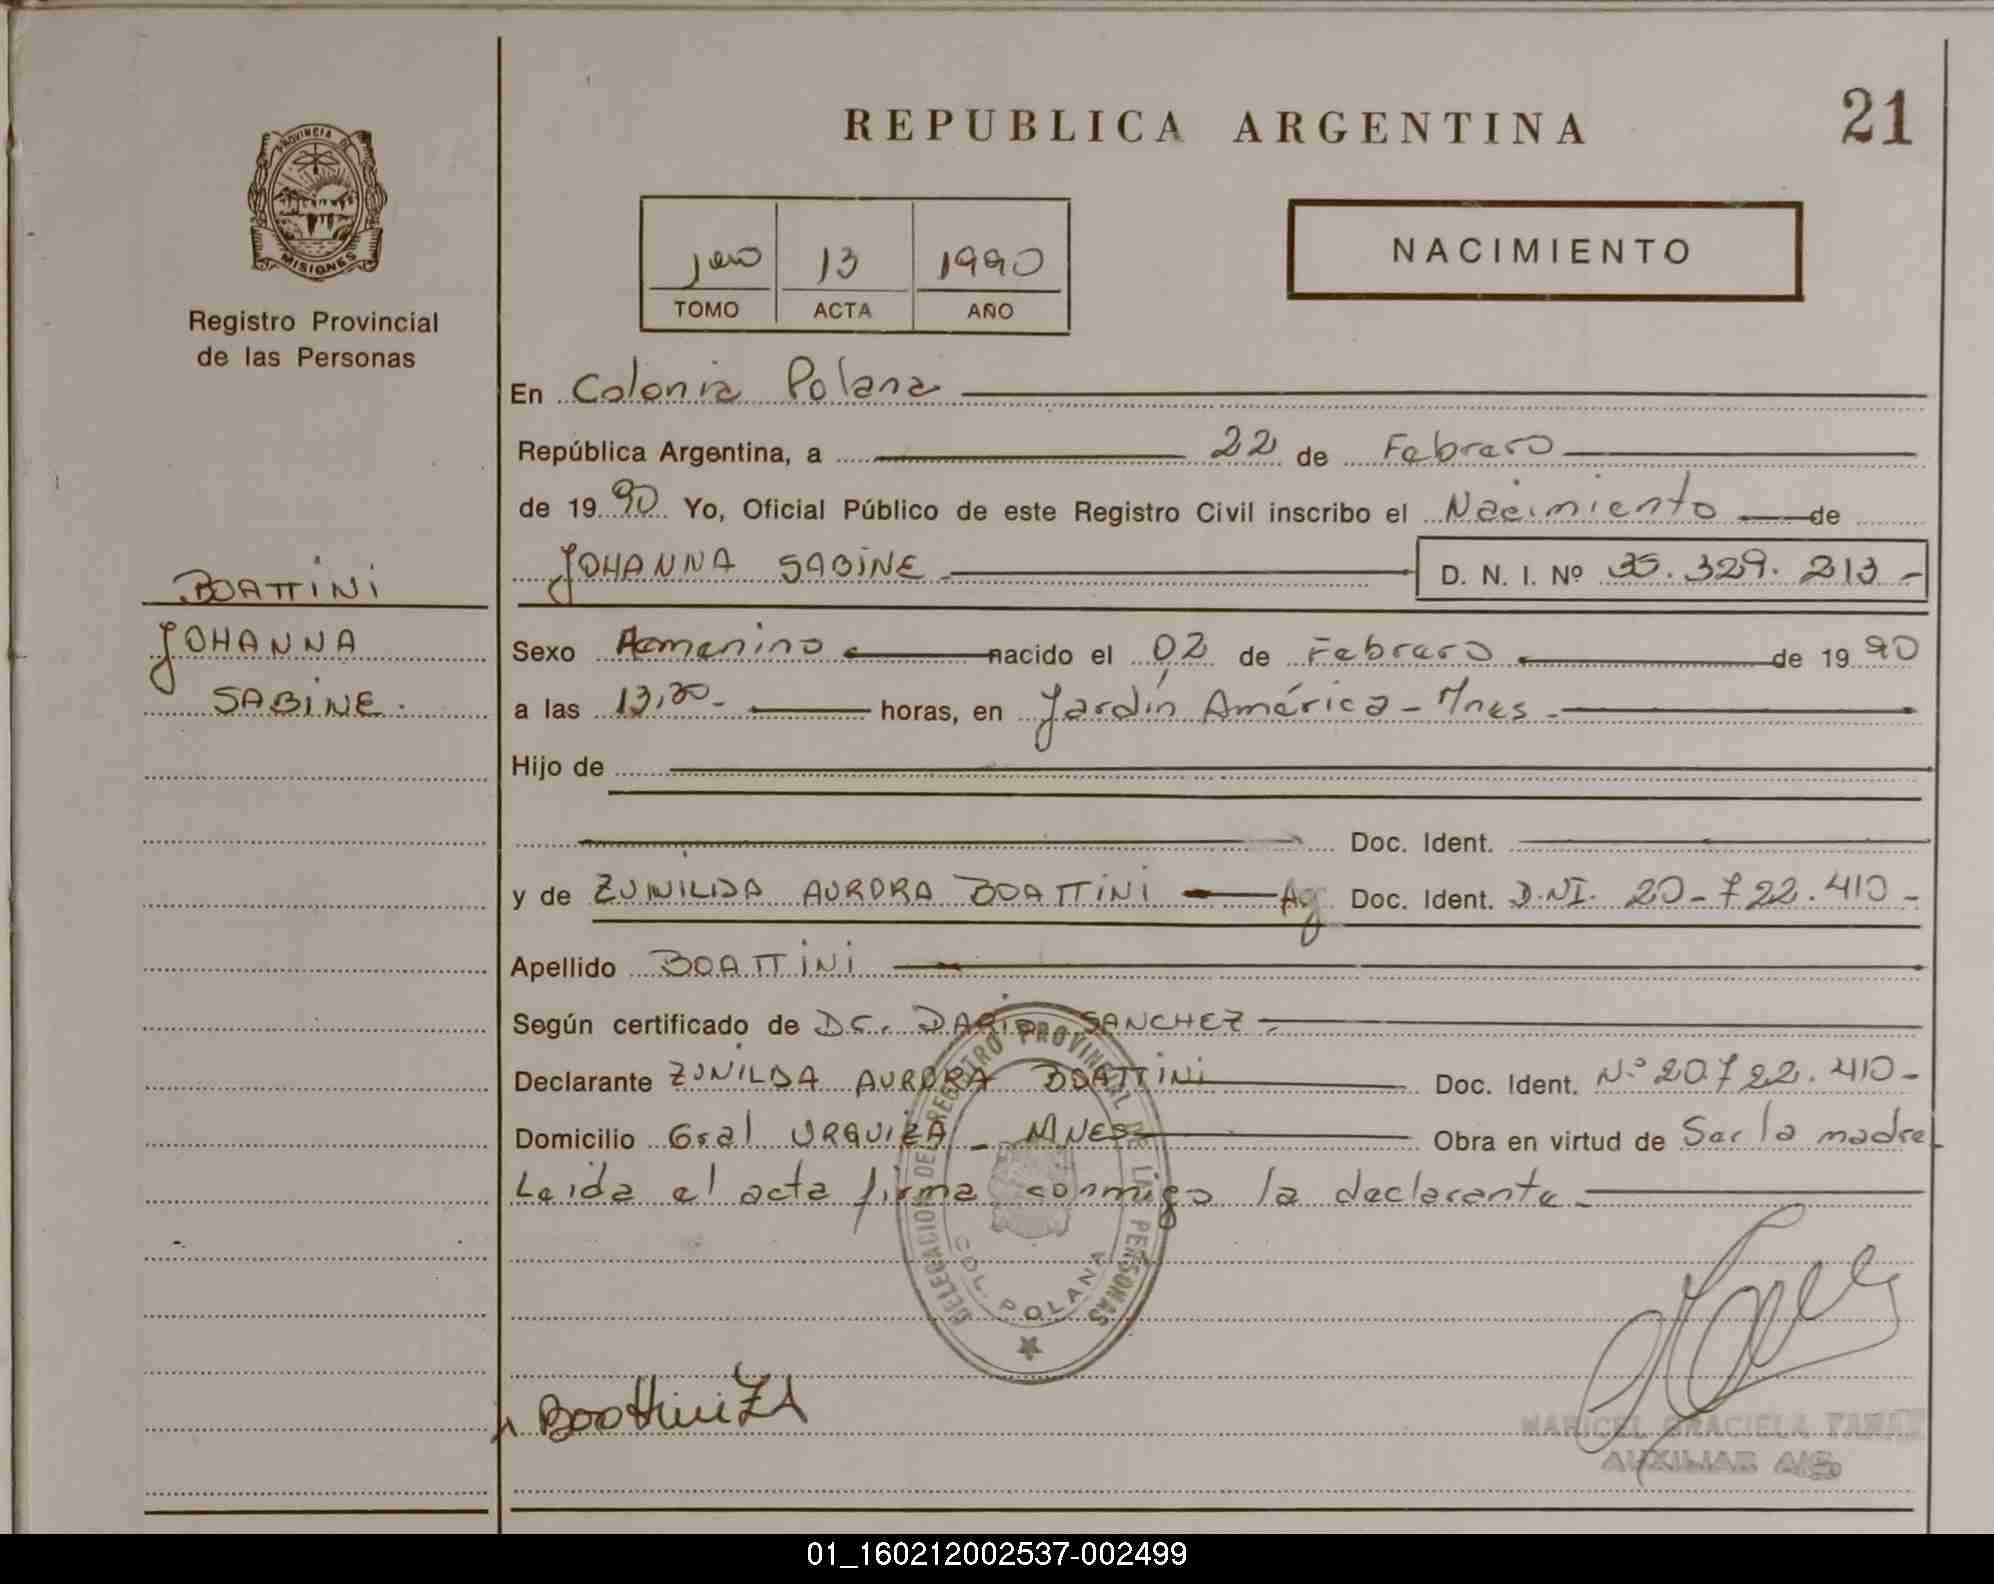 REPUBLICA ARGENTINA
21
PROVINCIA DE MISIONES
Registro Provincial
de las Personas
1ero 13 1990
TOMO ACTA AÑO
NACIMIENTO
En Colonia Polana
República Argentina, a 22 de Febrero
de 1990 Yo, Oficial Público de este Registro Civil inscribo el Nacimiento de
JOHANNA SABINE D. N. I. Nº 35.329.213-
BOATTINI
JOHANNA
SABINE.
Sexo Femenino nacido el 02 de Febrero de 1990
a las 13,30- horas, en Jardín América - Mnes -
Hijo de
Doc. Ident.
y de ZUNILDA AURORA BOATTINI Ag Doc. Ident. D.NI. 20-722.410-
Apellido BOATTINI
Según certificado de Dr. DARIO SANCHEZ-
Declarante ZUNILDA AURORA BOATTINI Doc. Ident. Nº 20.722.410-
Domicilio Gral URQUIZA - MNES Obra en virtud de Ser la madre
Leida el acta firma conmigo la declarante-
DELEGACION DEL REGISTRO PROVINCIAL DE LAS PERSONAS
COL. POLANA
Boattini ZA
MARICEL GRACIELA
AUXILIAR
01_160212002537-002499